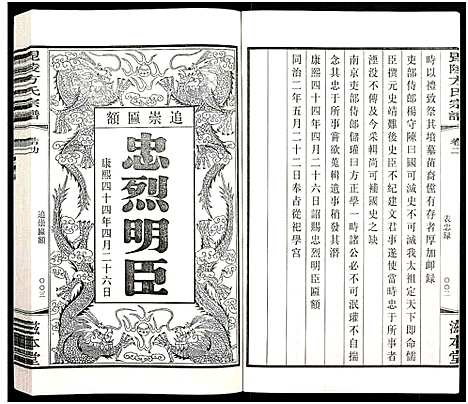 毘陵方氏宗譜
卷二
表忠録
〇〇二
滋本堂
時以禮致祭其墳墓苗裔儻有存者厚加卹録
吏部侍郎楊守陳曰國可滅史不可滅我太祖定天下即命儒
臣撰元史靖難後史臣不紀建文君事遂使當時忠於所事者
湮没不傳及今采輯尚可補國史之缺
南京吏部侍郎儲瓘曰方正學一時諸公必不可泯瓘不自揣
念其忠于所事嘗欲蒐輯遺事稍發其潛
康熙四十四年四月二十六日詔賜忠烈明臣匾額
同治二年五月二十二日奉占從祀學宮
追崇匾額
忠烈明臣
康熙四十四年四月二十六日
毘陵方氏宗譜
追崇匾額
〇〇三
滋本堂